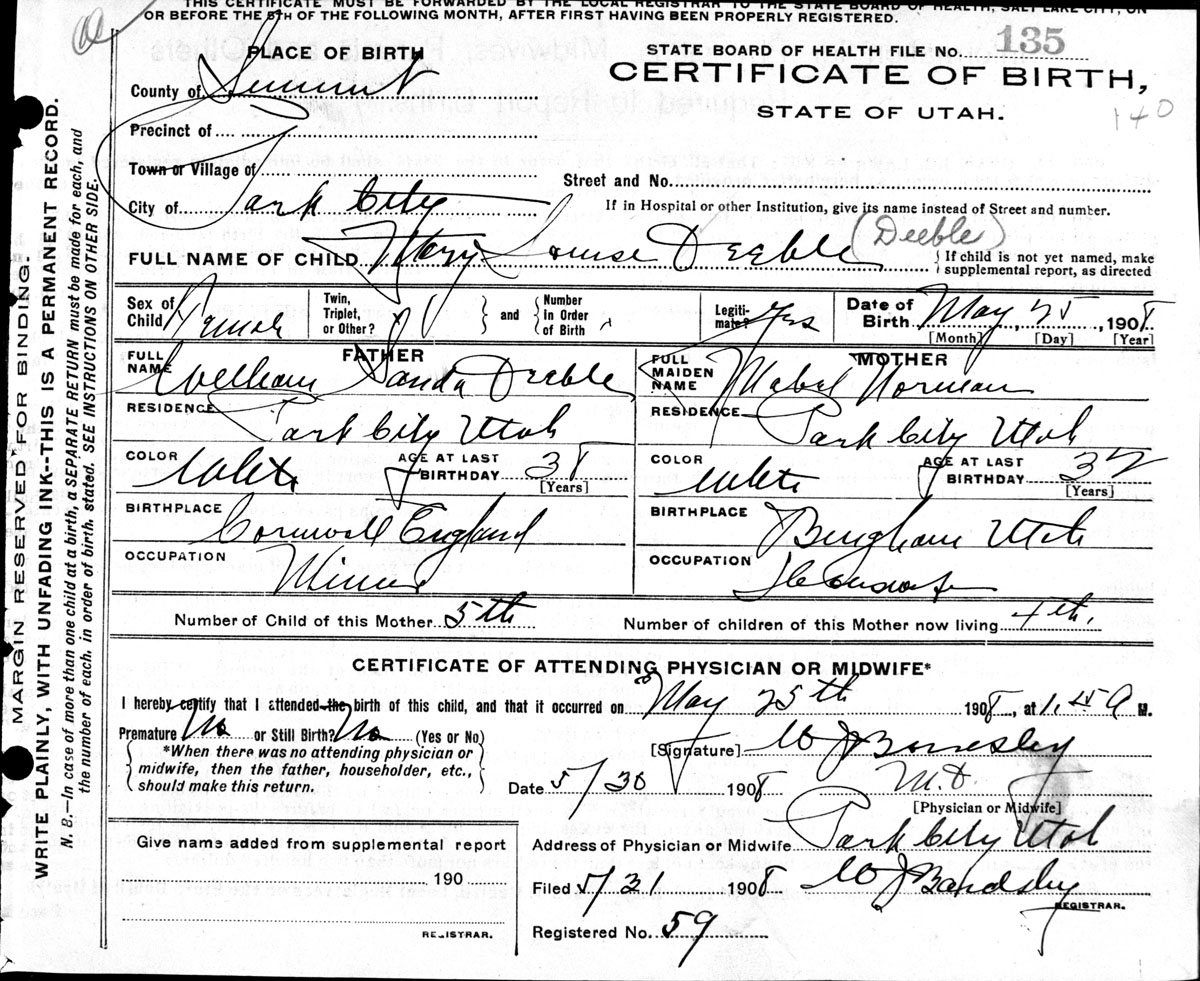 THIS CERTIFICATE MUST BE FORWARDED BY THE LOCAL REGISTRAR TO THE STATE BOARD OF HEALTH, SALT LAKE CITY, ON
OR BEFORE THE 5TH OF THE FOLLOWING MONTH, AFTER FIRST HAVING BEEN PROPERLY REGISTERED.
PLACE OF BIRTH
STATE BOARD OF HEALTH FILE NO. 135
CERTIFICATE OF BIRTH,
STATE OF UTAH.
140
County of Summit
Precinct of
Town or Village of
Street and No.
City of Park City
If in Hospital or other Institution, give its name instead of Street and number.
FULL NAME OF CHILD Mary Louise Deeble (Deeble)
{If child is not yet named, make supplemental report, as directed
Sex of Child Female
Twin, Triplet, or Other?
} and { Number in Order of Birth
Legitimate? Yes
Date of Birth May 25, 1908
[Month] [Day] [Year]
FATHER
FULL NAME William Deeble
RESIDENCE Park City Utah
COLOR White AGE AT LAST BIRTHDAY 38
[Years]
BIRTHPLACE Cornwall England
OCCUPATION Miner
MOTHER
FULL MAIDEN NAME Mabel Norman
RESIDENCE Park City Utah
COLOR White AGE AT LAST BIRTHDAY 32
[Years]
BIRTHPLACE Bingham Utah
OCCUPATION Housewife
Number of Child of this Mother 5th Number of children of this Mother now living 4th.
CERTIFICATE OF ATTENDING PHYSICIAN OR MIDWIFE*
I hereby certify that I attended the birth of this child, and that it occurred on May 25th 1908, at 1.15 A M.
Premature No or Still Birth? No (Yes or No)
{*When there was no attending physician or
midwife, then the father, householder, etc.,
should make this return.}
[Signature] W J Bardsley
Date 5/30 1908 M.D.
[Physician or Midwife]
Address of Physician or Midwife Park City Utah
Filed 5/31 1908 W J Bardsley
REGISTRAR.
Registered No. 59
Give name added from supplemental report
190
REGISTRAR.
MARGIN RESERVED FOR BINDING.
WRITE PLAINLY, WITH UNFADING INK--THIS IS A PERMANENT RECORD.
N. B.--In case of more than one child at a birth, a SEPARATE RETURN must be made for each, and
the number of each, in order of birth, stated. SEE INSTRUCTIONS ON OTHER SIDE.